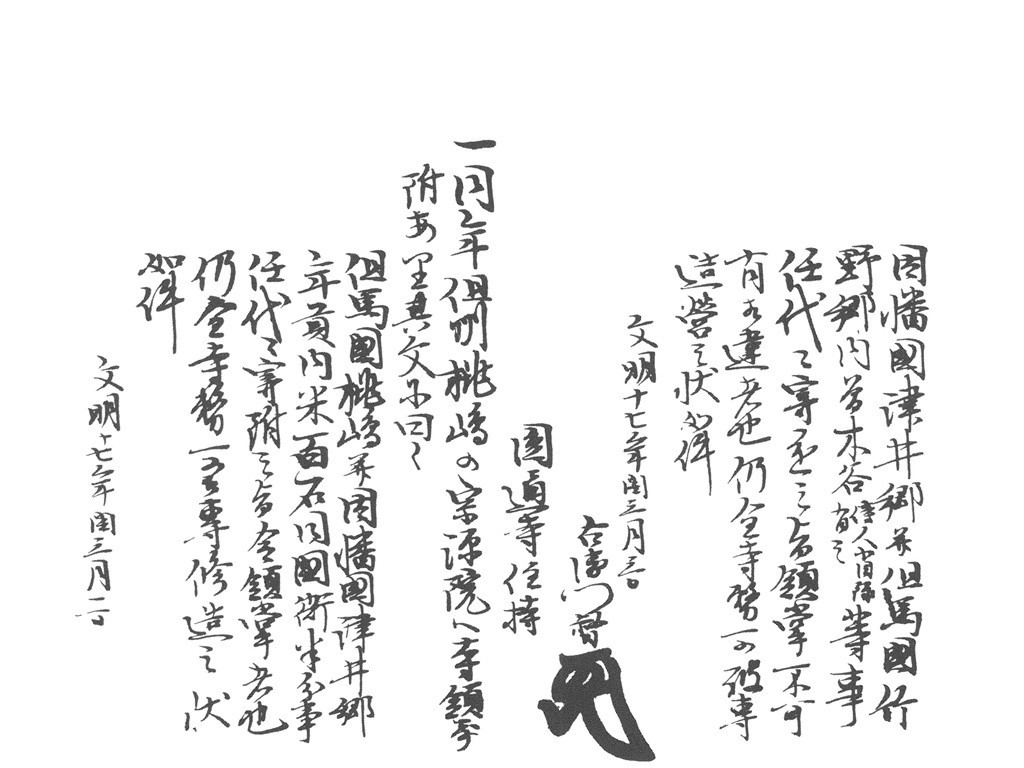 因幡國津井郷并但馬國竹
野郷内菅木谷等事
任代々寄進之旨領掌不可
有相違者也仍全寺務可被専
造營之状如件
文明十七年閏三月三日
右衛門督
圓通寺住持
一同年但州桃嶋の宗源院へ寺領寄
附あり其文に曰く
但馬國桃嶋并因幡國津井郷
年貢内米百石同國衙半分事
任代々寄附之旨令領掌者也
仍全寺務可専修造之状
如件
文明十七年閏三月二日